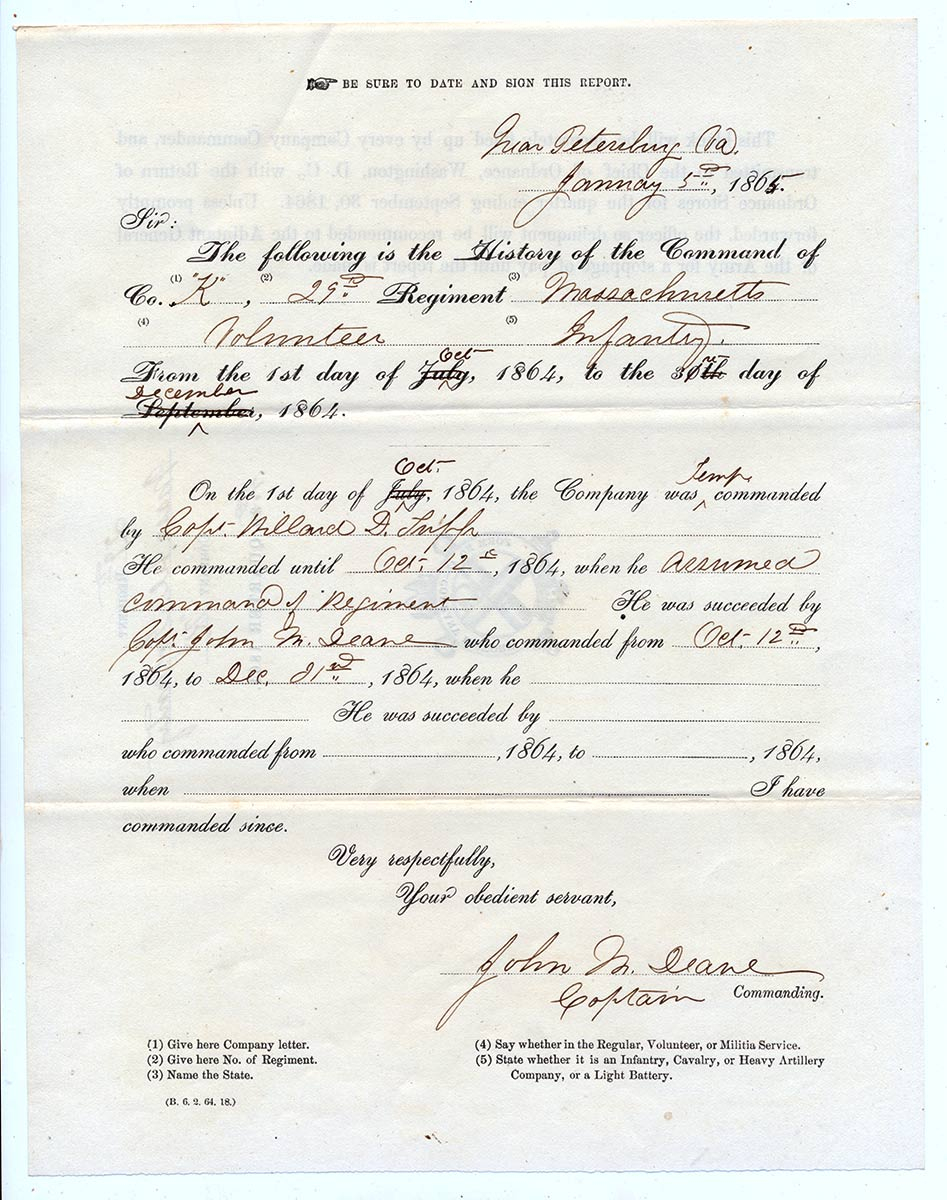 ☞ BE SURE TO DATE AND SIGN THIS REPORT.
Near Petersburg Va.
January 5th, 1865.
Sir:
The following is the History of the Command of
Co. (1) "K", (2) 29th Regiment (3) Massachusetts
(4) Volunteer (5) Infantry.
From the 1st day of July, Oct 1864, to the 30th day of
December
September, 1864.
On the 1st day of July, Oct. 1864, the Company was Temp. commanded
by Capt. Willard D. Tripp
He commanded until Oct. 12th, 1864, when he assumed
command of Regiment He was succeeded by
Capt. John M. Deane who commanded from Oct. 12th,
1864, to Dec. 31st, 1864, when he
He was succeeded by
who commanded from , 1864, to , 1864,
when I have
commanded since.
Very respectfully,
Your obedient servant,
John M. Deane
Captain Commanding.
(1) Give here Company letter.
(2) Give here No. of Regiment.
(3) Name the State.
(4) Say whether in the Regular, Volunteer, or Militia Service.
(5) State whether it is an Infantry, Cavalry, or Heavy Artillery
Company, or a Light Battery.
(B. 6. 2. 64. 18.)